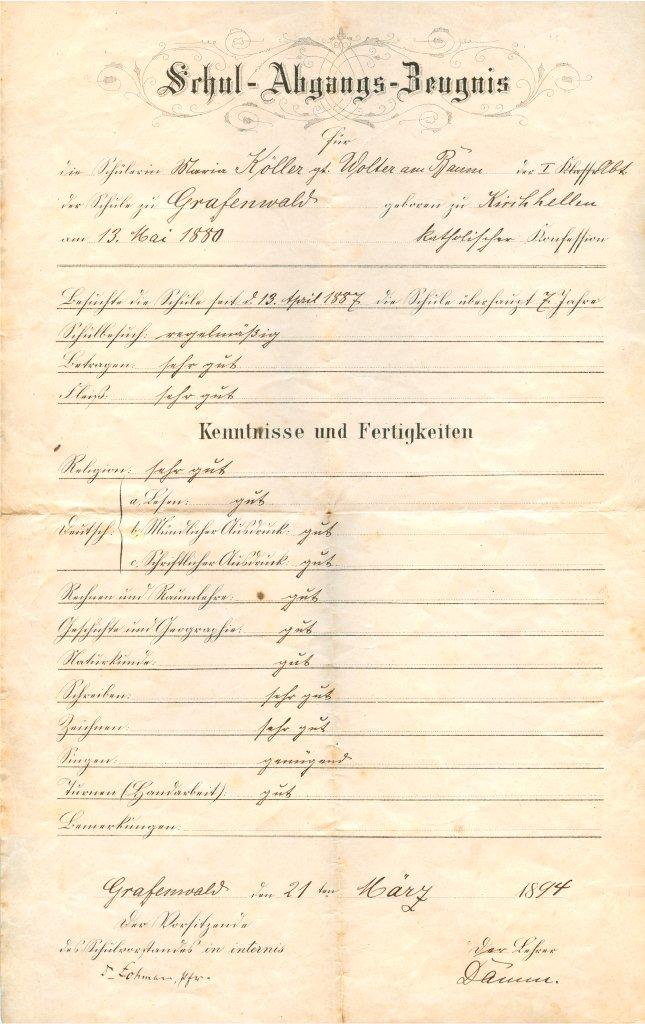 Schul-Abgangs-Zeugnis
für
die Schülerin Maria Köller gt. Wolter am Baum der I Klasse Abt.
der Schule zu Grafenwald geboren zu Kirchhellen
am 13. Mai 1880 katholischer Konfession
Besuchte die Schule seit d. 13. April 1887 die Schule überhaupt 7 Jahre
Schulbesuch: regelmäßig
Betragen: sehr gut
Fleiß: sehr gut
Kenntnisse und Fertigkeiten
Religion: sehr gut
Deutsch: a, Lesen: gut
b, Mündlicher Ausdruck: gut
c, Schriftlicher Ausdruck: gut
Rechnen und Raumlehre: gut
Geschichte und Geographie: gut
Naturkunde: gut
Schreiben: sehr gut
Zeichnen: sehr gut
Singen: genügend
Turnen (Handarbeit): gut
Bemerkungen:
Grafenwald den 21 ten März 1894
Der Vorsitzende
des Schulvorstandes in internis
Der Lehrer
Pfr.
Damm.